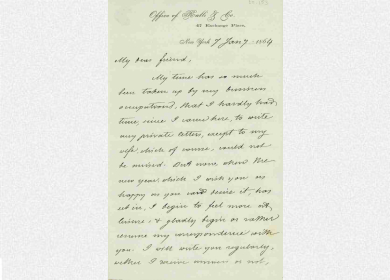 Office of Ralli & Co.
41 Exchange Place.
New York 7 Jan 1864
My dear friend,
My time has so much
been taken up by my business
occupations, that I hardly had
time since I came here, to write
any private letters, except to my
wife which of course, could not
be avoided. But now when the
new year which I wish you as
happy as you can desire it, has
set in, I begin to feel more at
leisure & gladly begin or rather
resume my correspondence with
you. I will write you regularly,
whether I receive answers or not,